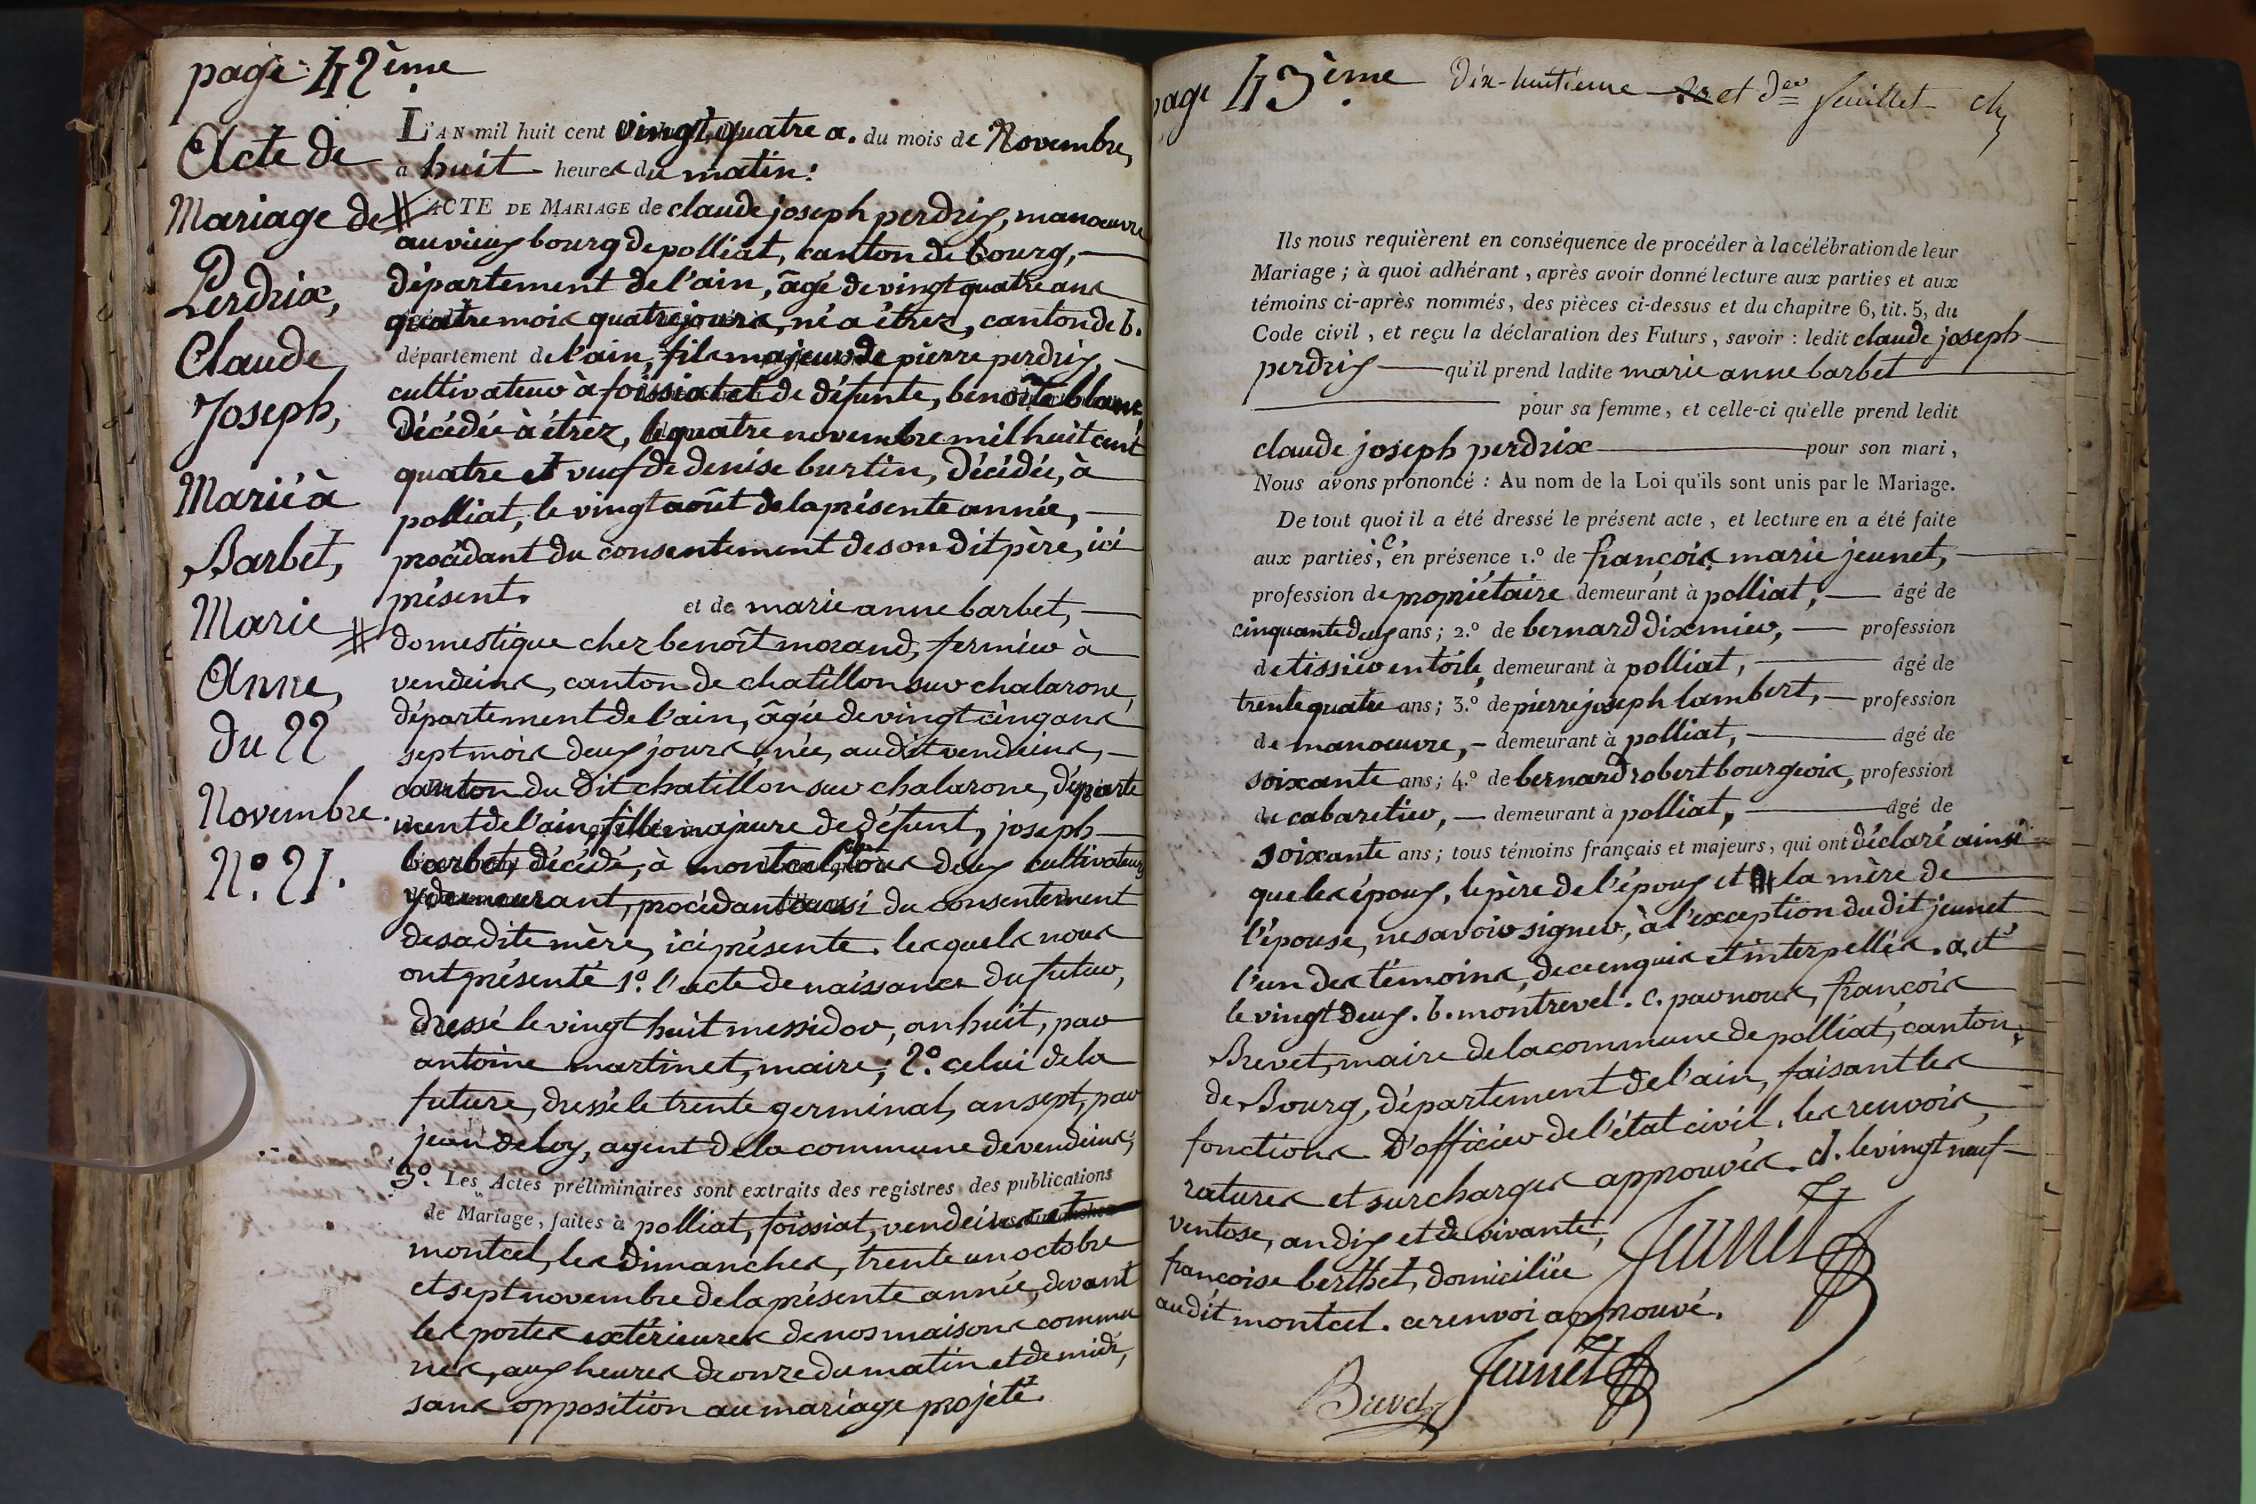 page 42ème
Acte de
Mariage de
Perdrix,
Claude
Joseph,
Marié à
Barbet,
Marie
Anne,
du 22
Novembre.
N.° 21.
L'AN mil huit cent vingt quatre a. du mois de Novembre,
à huit heures du matin:
ACTE DE MARIAGE de claude joseph perdrix, manoeuvre
au vieux bourg de polliat, canton de bourg,
département de l'ain, âgé de vingt quatre ans
quatre mois quatre jours, né a étrez, canton de b.
département de l'ain, fils majeur de pierre perdrix,
cultivateur à foissiat et de défunte, benoîte blanc
décédée à étrez, le quatre novembre mil huit cent
quatre et veuf de denise burtin, décédée, à
polliat, le vingt août de la présente année,
procédant du consentement de son dit père, ici
présent. et de marie anne barbet,
domestique chez benoît morand, fermier à
vendeins, canton de chatillon sur chalarone,
département de l'ain, âgée de vingt cinq ans
sept mois deux jours, née, audit vendeins,
canton du dit chatillon sur chalarone, départe
ment de l'ain, fille majeure de défunt, joseph
barbet, décédé, à montcel, tous deux cultivateurs
y demeurant, procédant aussi du consentement
de sa dite mère, ici présente. lesquels nous
ont présenté 1.° l'acte de naissance du futur,
dressé le vingt huit messidor, an huit, par
antoine martinet, maire; 2.° celui de la
future, dressé le trente germinal, an sept, par
jean deloy, agent de la commune de vendeins;
3.° Les Actes préliminaires sont extraits des registres des publications
de Mariage, faites à polliat, foissiat, vendeins et
montcel, les dimanches, trente un octobre
et sept novembre de la présente année, devant
les portes extérieures de nos maisons commu
nes, aux heures de onze du matin et de midi,
sans opposition au mariage projeté.
page 43ème Dix-huitième et der feuillet
Ils nous requièrent en conséquence de procéder à la célébration de leur
Mariage; à quoi adhérant, après avoir donné lecture aux parties et aux
témoins ci-après nommés, des pièces ci-dessus et du chapitre 6, tit. 5, du
Code civil, et reçu la déclaration des Futurs, savoir: ledit claude joseph
perdrix qu'il prend ladite marie anne barbet
pour sa femme, et celle-ci qu'elle prend ledit
claude joseph perdrix pour son mari,
Nous avons prononcé: Au nom de la Loi qu'ils sont unis par le Mariage.
De tout quoi il a été dressé le présent acte, et lecture en a été faite
aux parties, c en présence 1.° de françois marie jeunet,
profession de propriétaire demeurant à polliat, âgé de
cinquante deux ans; 2.° de bernard dixmier, profession
de tissier en toile, demeurant à polliat, âgé de
trente quatre ans; 3.° de pierre joseph lambert, profession
de manoeuvre, demeurant à polliat, âgé de
soixante ans; 4.° de bernard robert bourgeois, profession
de cabaretier, demeurant à polliat, âgé de
soixante ans; tous témoins français et majeurs, qui ont déclaré ainsi
que les époux, le père de l'époux et la mère de
l'épouse, ne savoir signer, à l'exception du dit jeunet
l'un des témoins, de ce enquis et interpellés. a. et
le vingt deux. b. montrevel. c. par nous, françois
Brevet, maire de la commune de polliat, canton
de Bourg, département de l'ain, faisant les
fonctions d'officier de l'état civil. les renvois,
ratures et surcharges approuvés. d. le vingt neuf
ventose, an dix et de vivante,
françoise berthet, domiciliée
audit montcel. ce renvoi approuvé.
Jeunet
Jeunet
Brevet